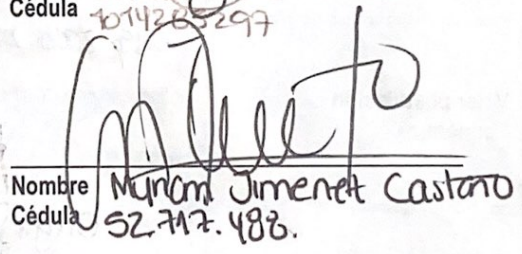 Cédula 1014265297
Nombre Myriam Jimenez Castaño
Cédula 52.717.488.